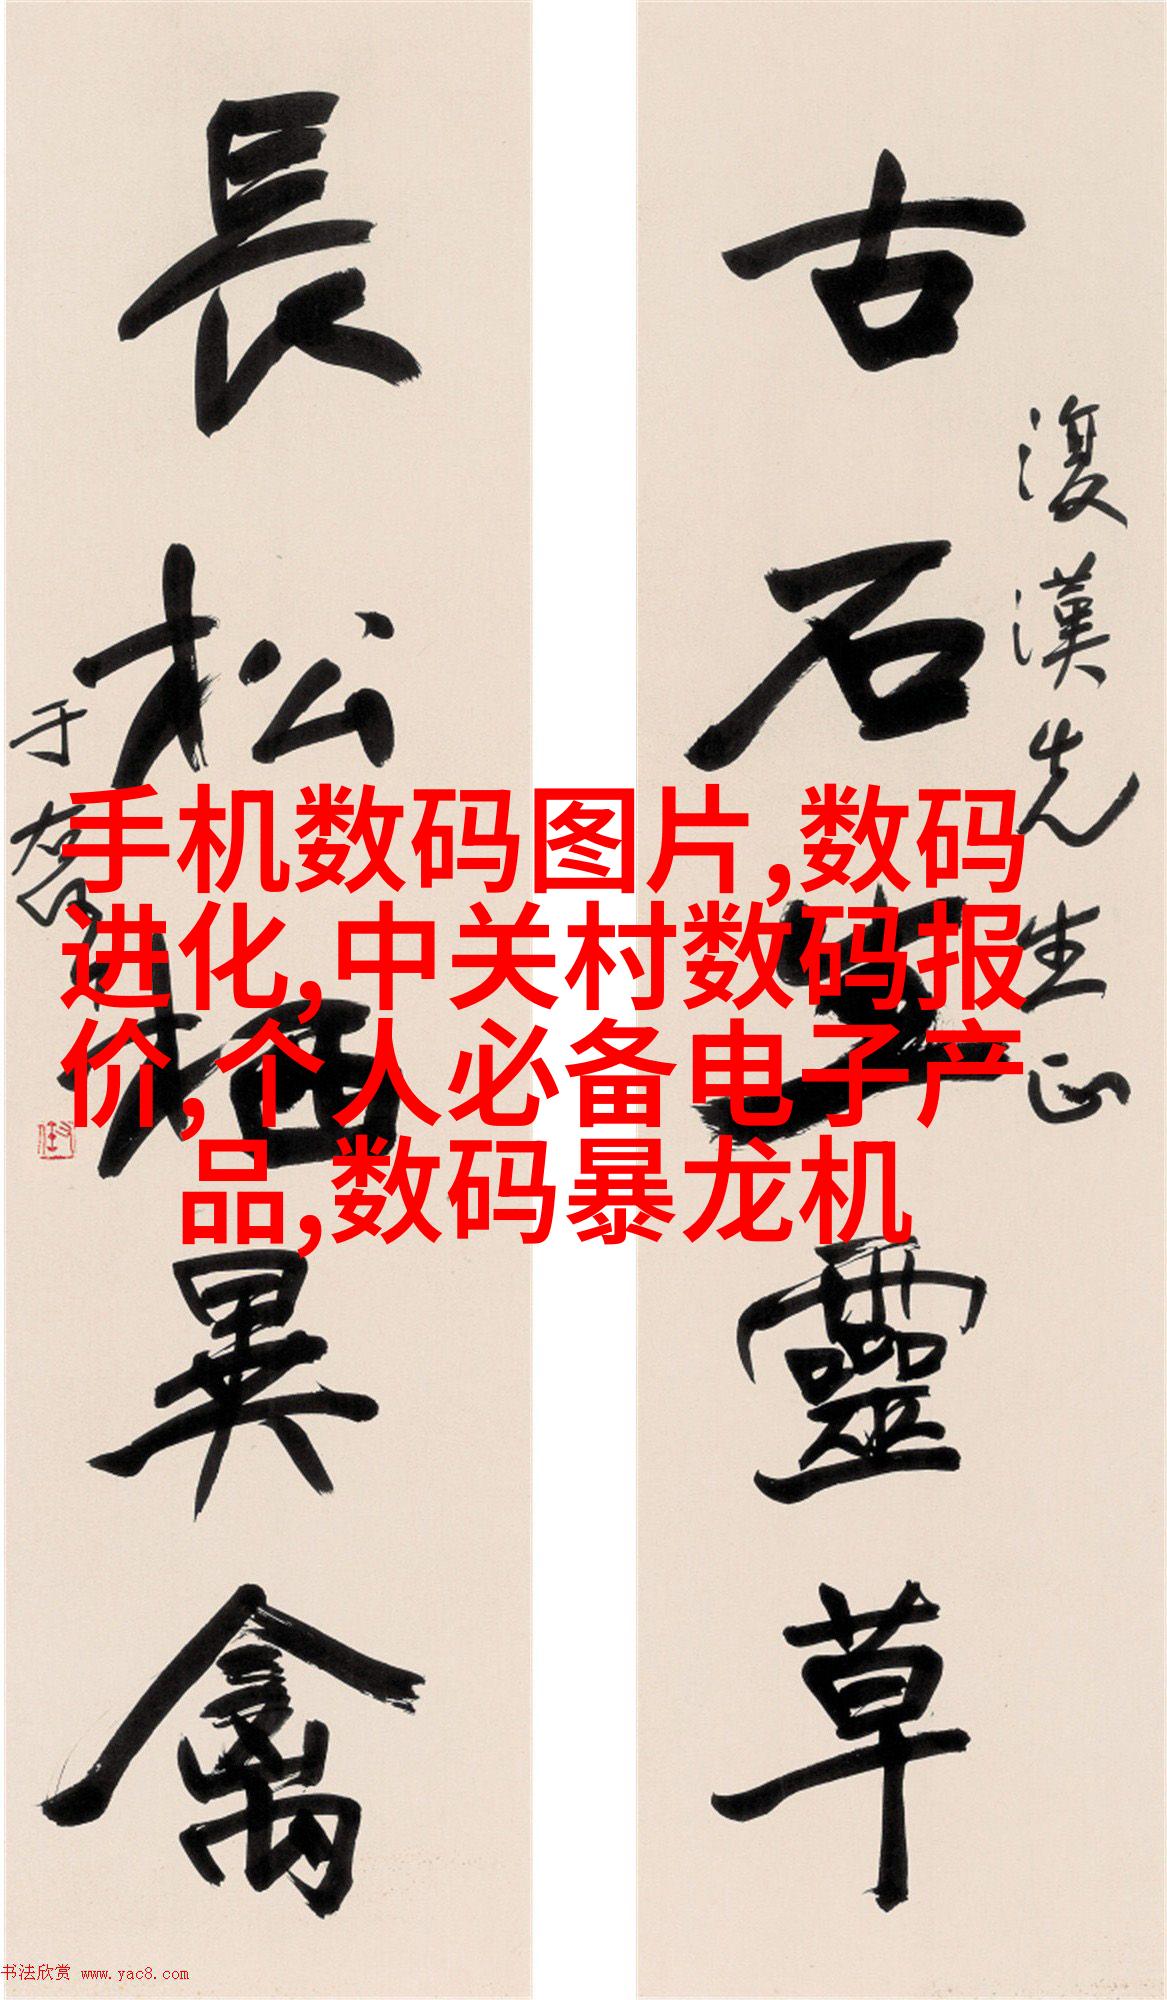 古石生靈草
復漢先生正
長松栖異禽
于右任
手机数码图片,数码
进化,中关村数码报
价,个人必备电子产
品,数码暴龙机
书法欣赏 www.yac8.com